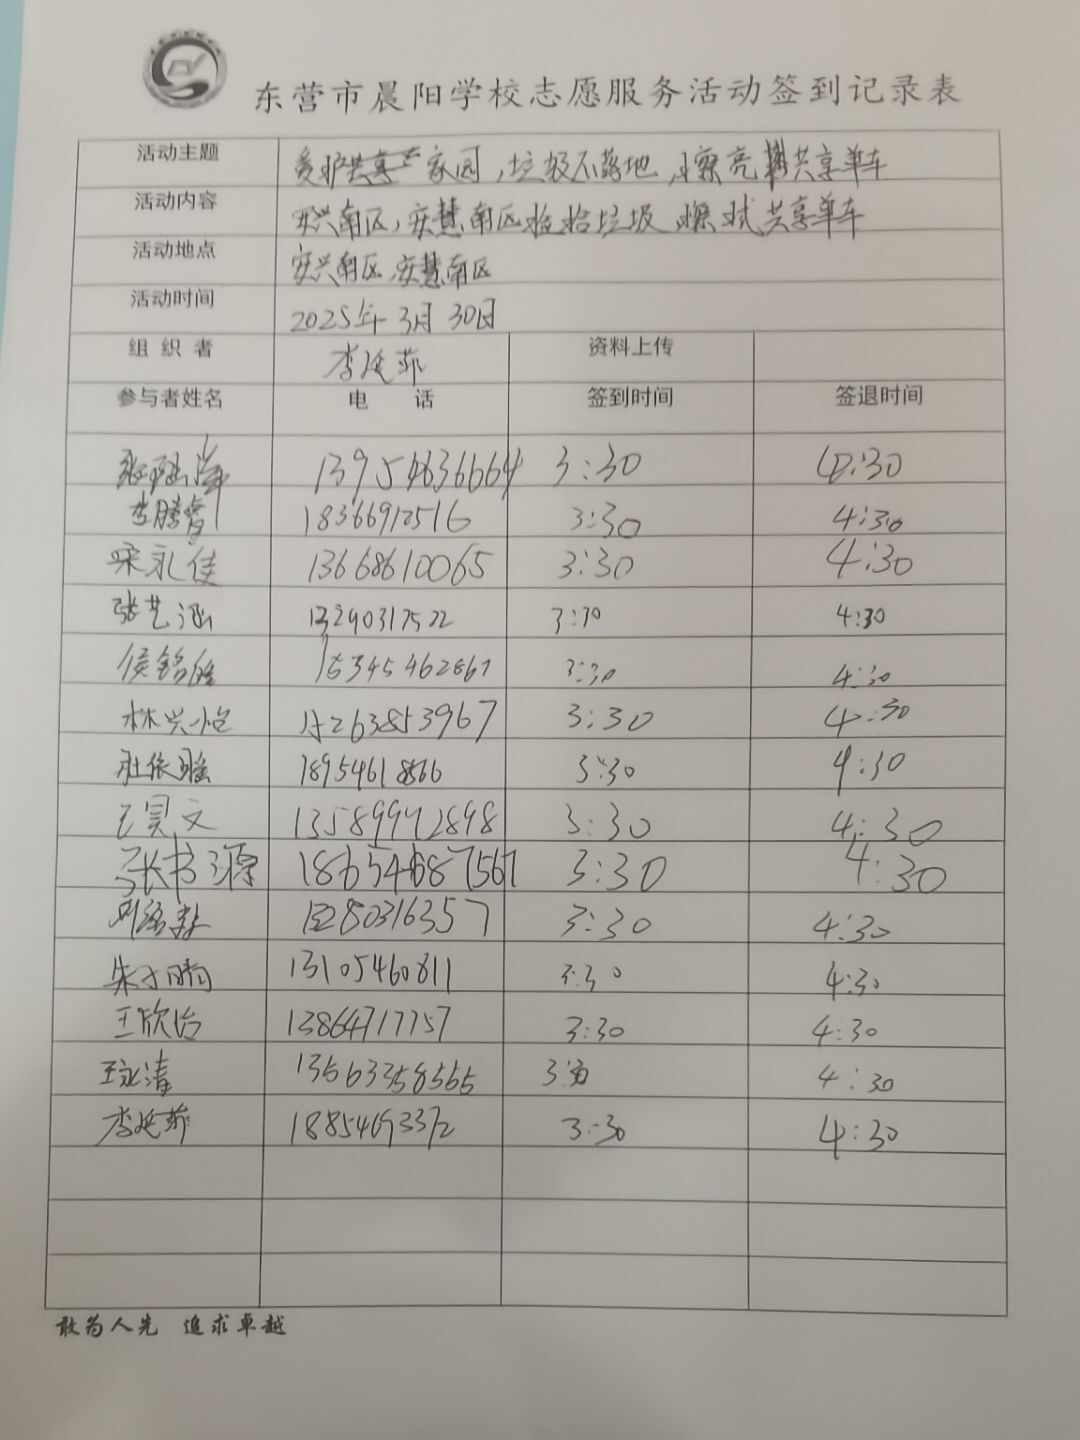 东营市晨阳学校志愿服务活动签到记录表
活动主题 爱护共享 家园,垃圾不落地,擦亮共享单车
活动内容 安兴南区,安慧南区捡拾垃圾 擦拭共享单车
活动地点 安兴南区,安慧南区
活动时间 2025年3月30日
组织者 李延菲 资料上传
参与者姓名 电话 签到时间 签退时间
13954636664 3:30 4:30
李腾睿 18366912516 3:30 4:30
宋永佳 13668610065 3:30 4:30
张艺涵 13290317522 3:30 4:30
侯铭皓 15345462867 3:30 4:30
林兴怡 15263853967 3:30 4:30
杜依璇 18954618566 3:30 4:30
王昊文 13589972898 3:30 4:30
张书源 3:30 4:30
3:30 4:30
朱子晴 13105460811 3:30 4:30
王欣治 13864717757 3:30 4:30
王永清 13563358555 3:30 4:30
李延菲 18854693372 3:30 4:30
敢为人先 追求卓越